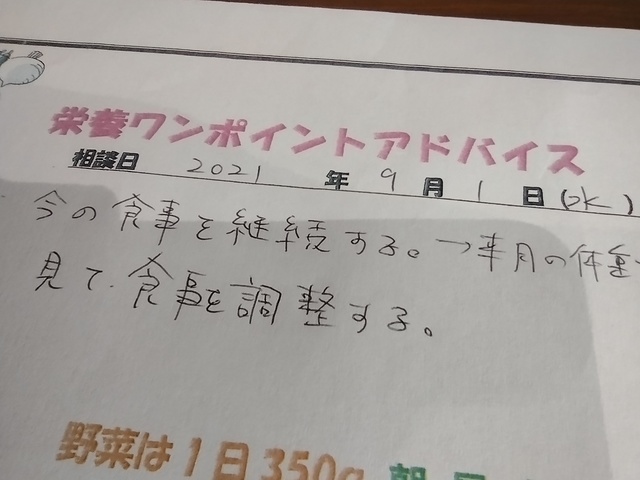 栄養ワンポイントアドバイス
相談日 2021 年 9 月 1 日(OK)
今の食事を継続する。→来月の体重
見て、食事を調整する。
野菜は1日350g 朝